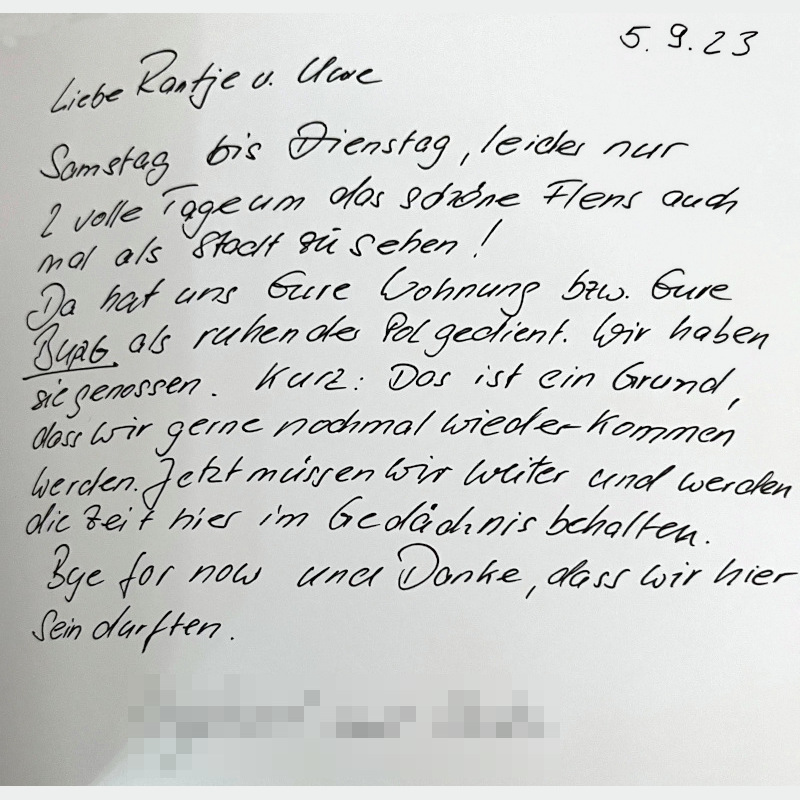 5. 9. 23
Liebe Rantje u. Uwe
Samstag bis Dienstag, leider nur
2 volle Tage um das schöne Flens auch
mal als Stadt zu sehen!
Da hat uns Eure Wohnung bzw. Eure
BURG als ruhender Pol gedient. Wir haben
sie genossen. Kurz: Das ist ein Grund,
dass wir gerne nochmal wieder kommen
werden. Jetzt müssen wir weiter und werden
die Zeit hier im Gedächnis behalten.
Bye for now und Danke, dass wir hier
sein durften.